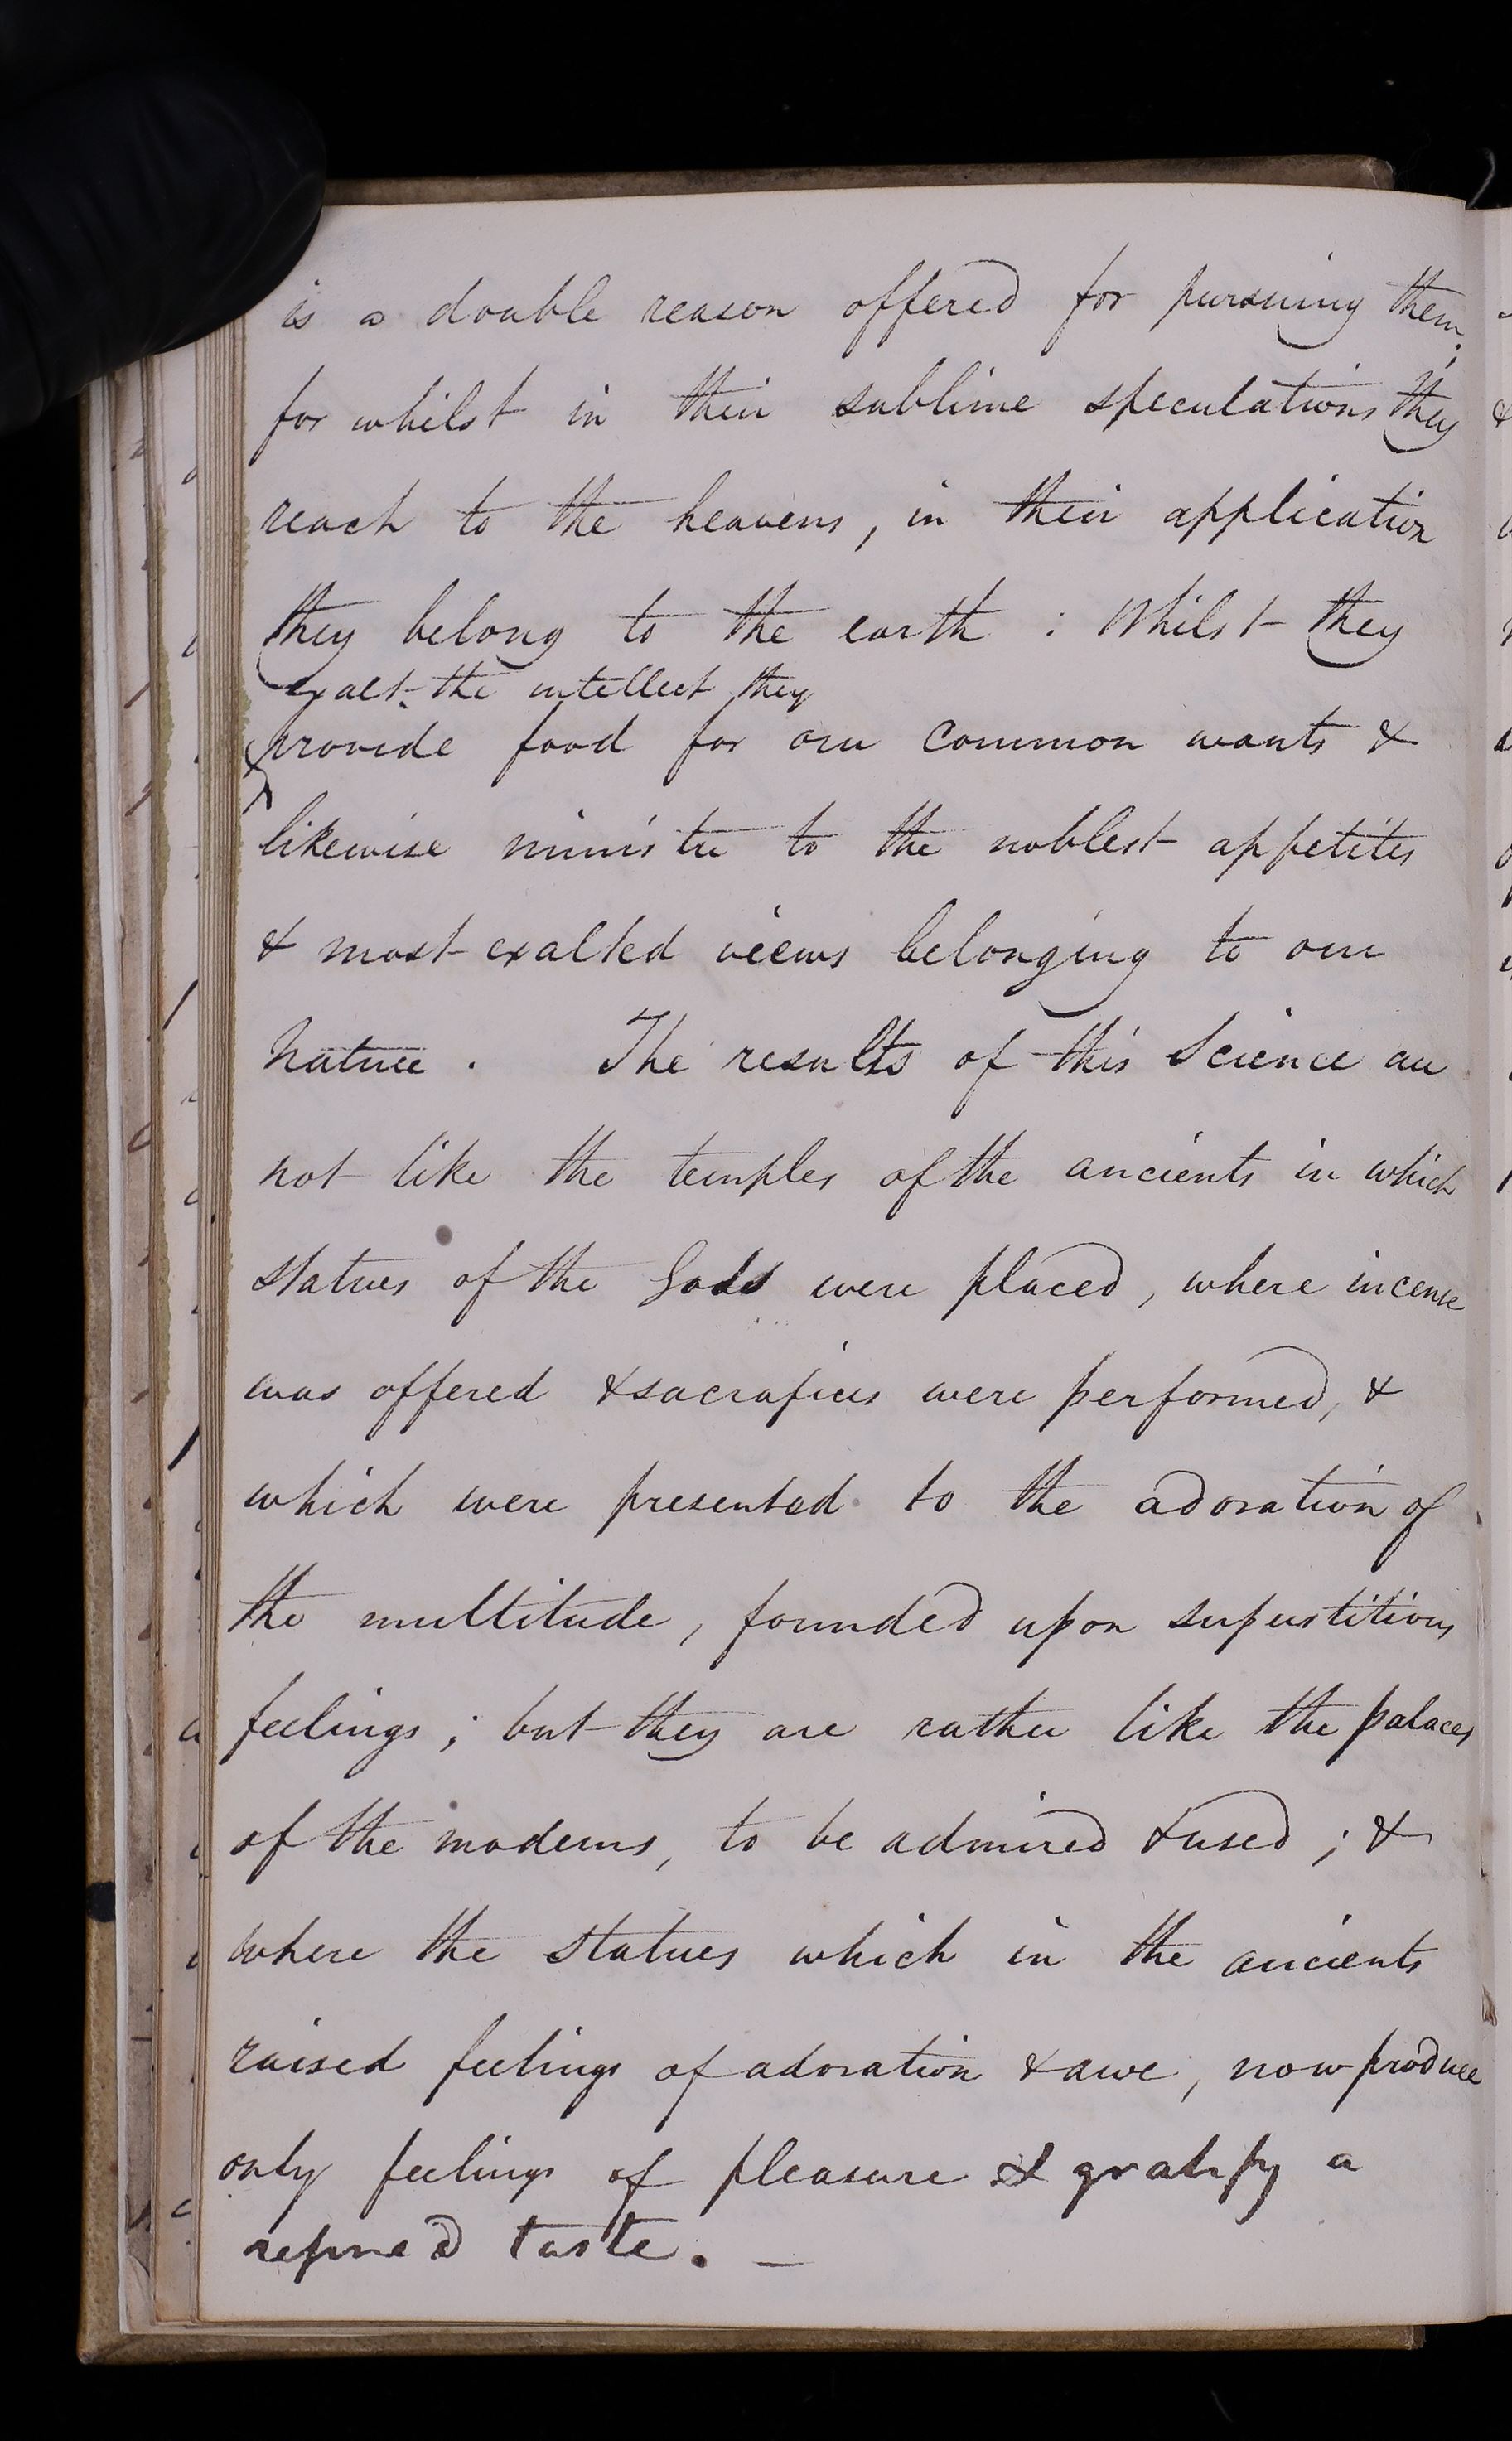 is a double reason offered for pursuing them;
for whilst in their sublime speculations they
reach to the heavens, in their application
they belong to the earth : Whilst they
exalt the intellect they
provide food for our common wants &
likewise minister to the noblest appetites
& most exalted views belonging to our
Nature . The results of this Science are
not like the temples of the ancients in which
statues of the Gods were placed, where incense
was offered & sacrafices were performed, &
which were presented to the adoration of
the multitude, founded upon superstitious
feelings; but they are rather like the palaces
of the moderns, to be admired & used; &
where the statues which in the ancients
raised feelings of adoration & awe, now produce
only feelings of pleasure & gratify a
refined taste. —